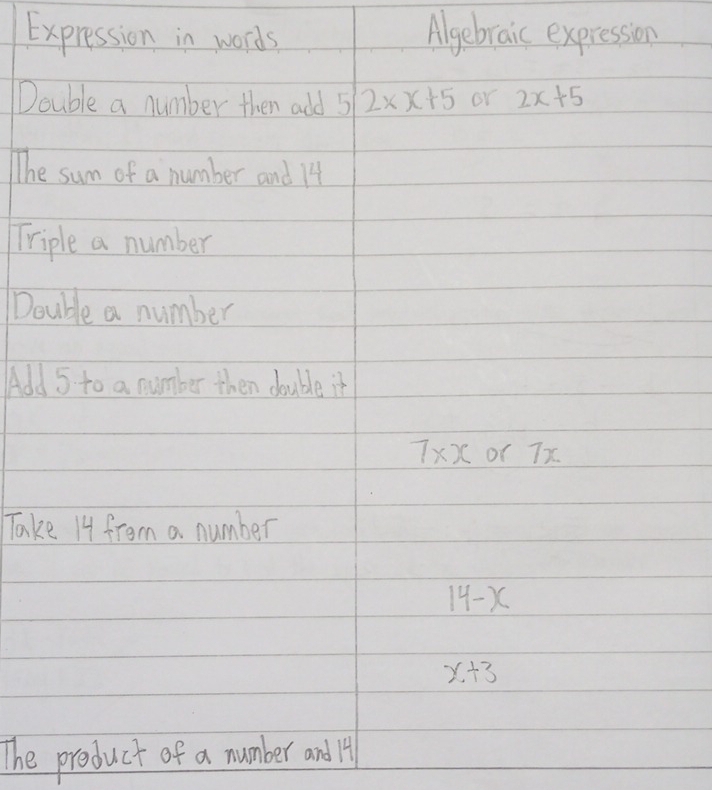 Expression in words Algebraic expression
Double a number then add 5 2×x+5 or 2x+5
The sum of a number and 14
Triple a number
Double a number
Add 5 to a number then double it
7×x or 7x
Take 14 from a number
14-x
x+3
The product of a number and 14